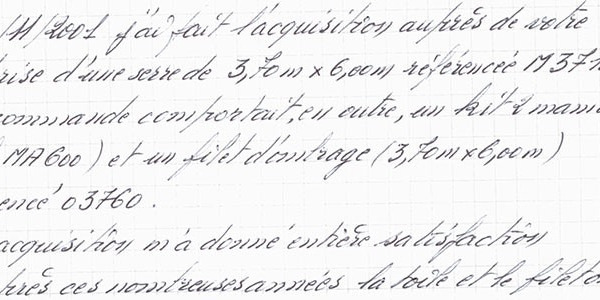 /11/2001 j'ai fait l'acquisition auprès de votre
rise d'une serre de 3,70m x 6,00m référenceé M371
commande comportait, en outre, un kit 2 mam
MA600) et un filet d'ombrage (3,70m x 6,00m)
encé 03760.
acquisition m'a donné entière satisfaction
près ces nombreuses années la toile et le filet d